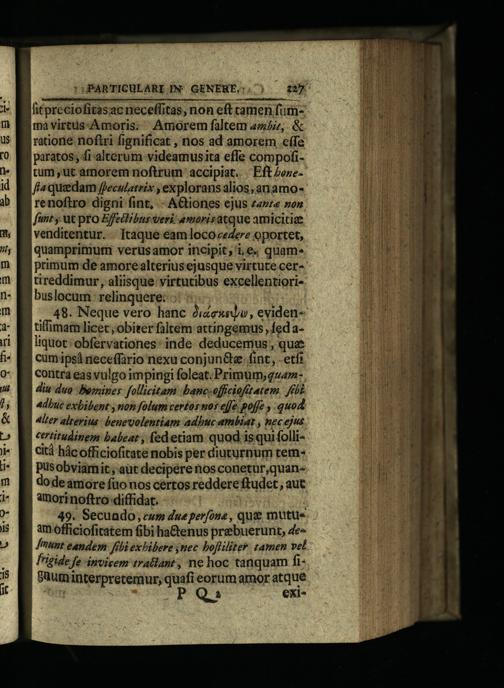 PARTICULARI IN GENERE. 227
sit preciositas ac necessitas, non est tamen sum-
ma virtus Amoris. Amorem saltem ambit, &
ratione nostri significat, nos ad amorem esse
paratos, si alterum videamus ita esse composi-
tum, ut amorem nostrum accipiat. Est hone-
sta quædam speculatrix, explorans alios, an amo-
re nostro digni sint. Actiones ejus tantæ non
sunt, ut pro Effectibus veri amoris atque amicitiæ
venditentur. Itaque eam loco cedere oportet,
quamprimum verus amor incipit, i. e. quam-
primum de amore alterius ejusque virtute cer-
ti reddimur, aliisque virtutibus excellentiori-
bus locum relinquere.
48. Neque vero hanc διάσκεψιν, eviden-
tissimam licet, obiter saltem attingemus, sed a-
liquot observationes inde deducemus, quæ
cum ipsâ necessario nexu conjunctæ sint, etsi
contra eas vulgo impingi soleat. Primum, quam-
diu duo homines sollicitam hanc officiositatem sibi
adhuc exhibent, non solum certos nos esse posse, quod
alter alterius benevolentiam adhuc ambiat, nec ejus
certitudinem habeat, sed etiam quod is qui solli-
citâ hâc officiositate nobis per diuturnum tem-
pus obviam it, aut decipere nos conetur, quan-
do de amore suo nos certos reddere studet, aut
amori nostro diffidat.
49. Secundo, cum duæ personæ, quæ mutu-
am officiositatem sibi hactenus præbuerunt, de-
sinunt eandem sibi exhibere, nec hostiliter tamen vel
frigide se invicem tractant, ne hoc tanquam si-
gnum interpretemur, quasi eorum amor atque
P Q 2 exi-